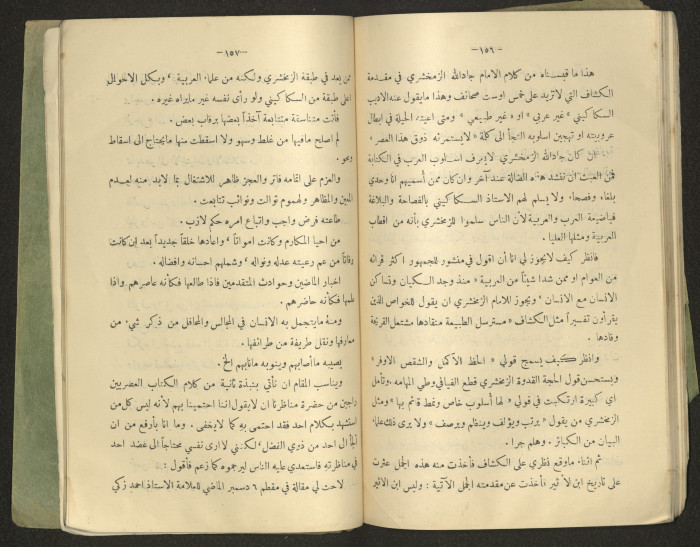 — ١٥٦ —
هذا ما قبسناه من كلام الامام جارالله الزمخشري في مقدمة
الكشاف التي لا تزيد على خمس او ست صحائف وهذا ما يقول عنه الاديب
السكاكيني « غير عربي » او « غير طبيعي » ومتى اعيته الحيلة في ابطال
عروبيته او تهجين اسلوبه التجأ الى كلمة « لا يستمرئه ذوق هذا العصر »
كان جارالله الزمخشري لا يعرف اسلوب العرب في الكتابة
فمن العبث ان تنشد هذه الضالة عند آخر وان كان ممن أسميهم انا وحدي
بلغاء وفصحاء ولا يسلم لهم الاستاذ السكاكيني بالفصاحة والبلاغة
فياضيعة العرب والعربية لأن الناس سلموا للزمخشري بأنه من اقطاب
العربية ومثلها العليا .
فانظر كيف لا يجوز لي انا أن اقول في منشور للجمهور اكثر قرائه
من العوام او ممن شدا شيئاً من العربية « منذ وجد السكيان وتساكن
الانسان مع الانسان » ويجوز للامام الزمخشري ان يقول للخواص الذين
يقرأون تفسيراً مثل الكشاف « مسترسل الطبيعة منقادها مشتعل القريحة
وقادها »
وانظر كيف يسمج قولي « الحظ الاكمل والشقص الاوفر »
ويستحسن قول الحجة القدوة الزمخشري قطع الفيافي وطي المهامه . وتأمل
اي كبيرة ارتكبت في قولي « لها أسلوب خاص ونمط قائم بها » ومثل
الزمخشري من يقول « يرتب ويؤلف وينظم ويرصف » ولا يرى ذلك علماء
البيان من الكبائر . وهلم جرا .
ثم اثناء ما وقع نظري على الكشاف فأخذت منه هذه الجمل عثرت
على تاريخ ابن الأثير فأخذت عن مقدمته الجمل الآتية : وليس ابن الاثير
— ١٥٧ —
ممن يعد في طبقة الزمخشري ولكنه من علماء العربية ، وبكل الاحوال
اعلى طبقة من السكاكيني ولو رأى نفسه غير ما يراه غيره .
فأتت متناسقة متتابعة آخذاً بعضها برقاب بعض .
لم اصلح ما فيها من غلط وسهو ولا اسقطت منها ما يحتاج الى اسقاط
ومحو .
والعزم على اتمامه فاتر والعجز ظاهر للاشتغال بما لا بد منه لعدم
المعين والمظاهر ولهموم توالت ونوائب تتابعت .
طاعته فرض واجب واتباع امره حكم لازب .
من احيا المكارم وكانت امواتاً ، واعادها خلقاً جديداً بعد ان كانت
رفاتاً من عم رعيته عدله ونواله ، وشملهم احسانه وافضاله .
اخبار الماضين وحوادث المتقدمين فاذا طالعها فكأنه عاصرهم واذا
علمها فكأنه حاضرهم .
ومنه ما يتجمل به الانسان في المجالس والمحافل من ذكر شيء من
معارفها ونقل طريفة من طرائفها .
يصيبه ما اصابهم وينوبه ما نابهم الخ .
ويناسب المقام ان نأتي بنبذة ثانية من كلام الكتاب العصريين
راجين من حضرة مناظرنا ان لا يقول اننا احتمينا بهم لأنه ليس كل من
استشهد بكلام احد فقد احتمى به كما لا يخفى . وما انا بأرفع من ان
ألجأ الى احد من ذوي الفضل ، لكنني لا ارى نفسي محتاجاً الى عضد احد
في مناظرته فاستعدي عليه الناس ليرجموه كما زعم فأقول :
لاحت لي مقالة في مقطم ٦ دسمبر الماضي للعلامة الاستاذ احمد زكي